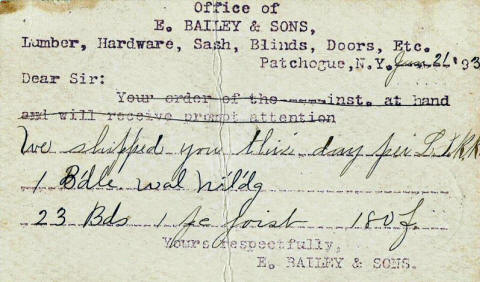 Office of
E. BAILEY & SONS,
Lumber, Hardware, Sash, Blinds, Doors, Etc.
Patchogue, N.Y. 21 '93
Dear Sir:
Your order of the inst. at hand
and will receive prompt attention
We shipped you this day per L.I.R.R.
1 Bdle. wal
23 Bds 1 pc Joist 180 f.
Yours respectfully,
E. BAILEY & SONS.